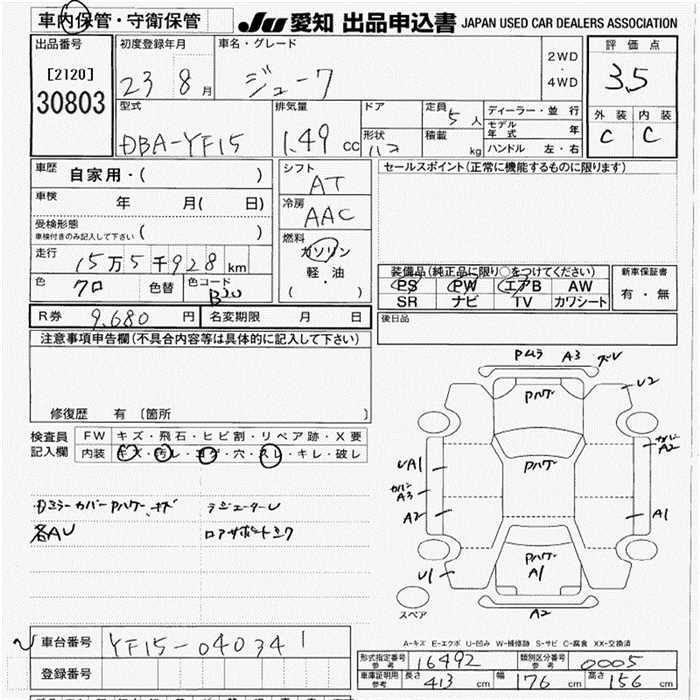 車内保管・守衛保管
JU 愛知 出品申込書 JAPAN USED CAR DEALERS ASSOCIATION
出品番号
[2120]
30803
初度登録年月
23 8 月
車名・グレード
ジューク
2WD
・
4WD
評価点
3.5
外装 内装
C C
型式
DBA-YF15
排気量
1.49 cc
ドア
形状
定員 5 人
積載 kg
ディーラー・並行
モデル年式 年
ハンドル 左・右
車歴
自家用・( )
車検 年 月( 日)
受検形態
車検付きのみ記入して下さい ( )
走行
15万5千928 km
色 クロ 色替 色コード
シフト
AT
冷房
AAC
燃料
ガソリン
軽・油
( )
セールスポイント(正常に機能するものに限ります)
装備品(純正品に限り○をつけてください)
PS PW エアB AW
SR ナビ TV カワシート
新車保証書
有・無
R券 9,680 円 名変期限 月 日
後日品
注意事項申告欄(不具合内容等は具体的に記入して下さい)
修復歴 有 [箇所 ]
検査員記入欄
FW キズ・飛石・ヒビ割・リペア跡・X要
内装 キズ・汚レ・コゲ・穴・スレ・キレ・破レ
DミラーカバーPハゲ、キズ
各AU
ラジエータU
ロアサポートエク
Pムラ A3
Pハゲ
U2
A2
Pハゲ
UA1
カバー
A3
A2
A1
Pハゲ
A1
U1
A2
スペア
A-キズ E-エクボ U-凹み W-補修跡 S-サビ C-腐食 XX-交換済
車台番号 YF15-040341
登録番号
形式指定番号 参考 16492 類別区分番号 参考 0005
車庫証明用 参考 長さ 413 cm 幅 176 cm 高さ 156 cm